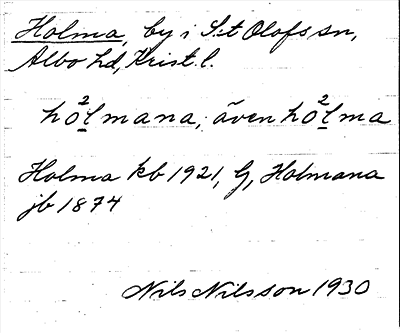 Holma, by i S:t Olofs sn,
Albo hd, Krist. l.
ho²lmana, även ho²lma
Holma kb 1921, G, Holmana
jb 1874
Nils Nilsson 1930